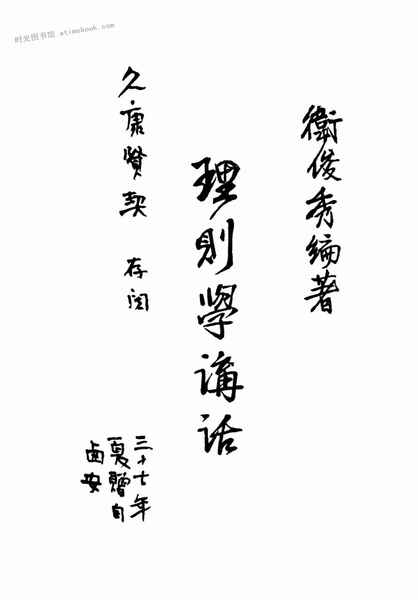 时光图书馆 atimebook.com
衛俊秀編著
理則學講話
久康賢契 存阅
三十七年
夏贈自
西安